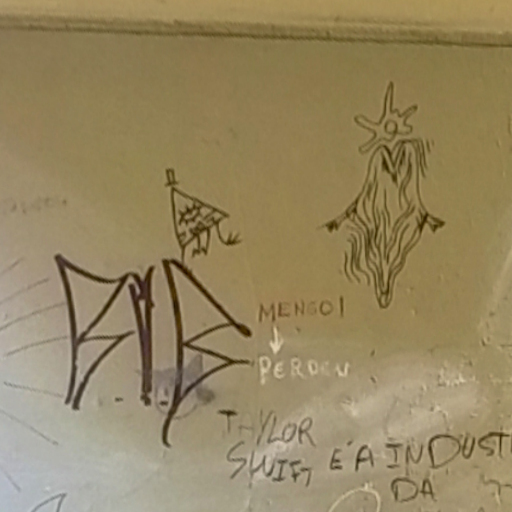 MENGO!
PERDEU
TAYLOR
SWIFT É A INDUST
DA